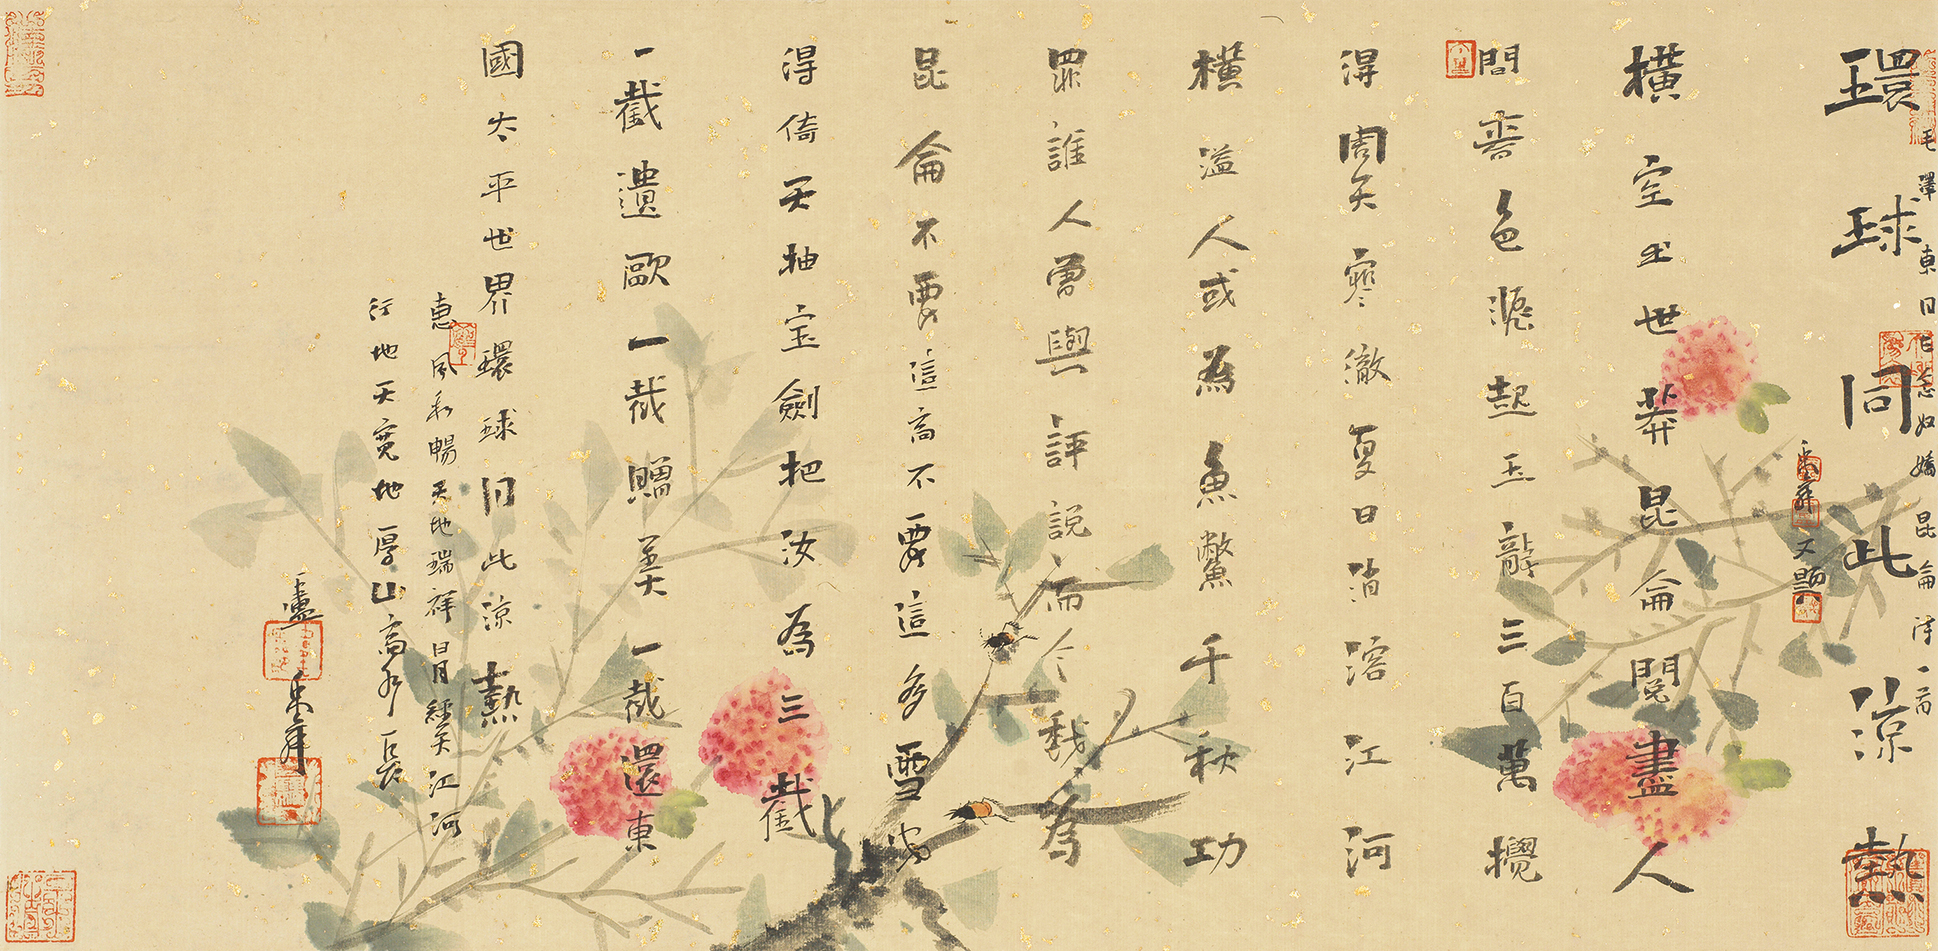 環球同此涼熱
毛澤東曰念奴嬌昆侖詩一首
又題
橫空出世莽昆侖閱盡人
間春色飛起玉龍三百萬攪
得周天寒徹夏日消溶江河
橫溢人或為魚鱉千秋功
罪誰人曾與評說而今我為
昆侖不要這高不要這多雪安
得倚天抽宝劍把汝為三截
一截遺歐一截贈美一截還東
國太平世界環球同此涼熱
惠風和暢天地瑞祥日月經天江河
行地天寬地厚山高水長